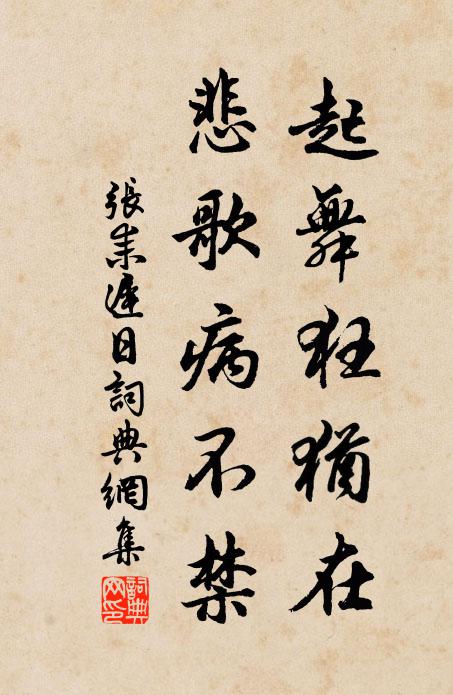 起舞狂猶在
悲歌病不禁
張耒遲日詞典網集
詞典網印